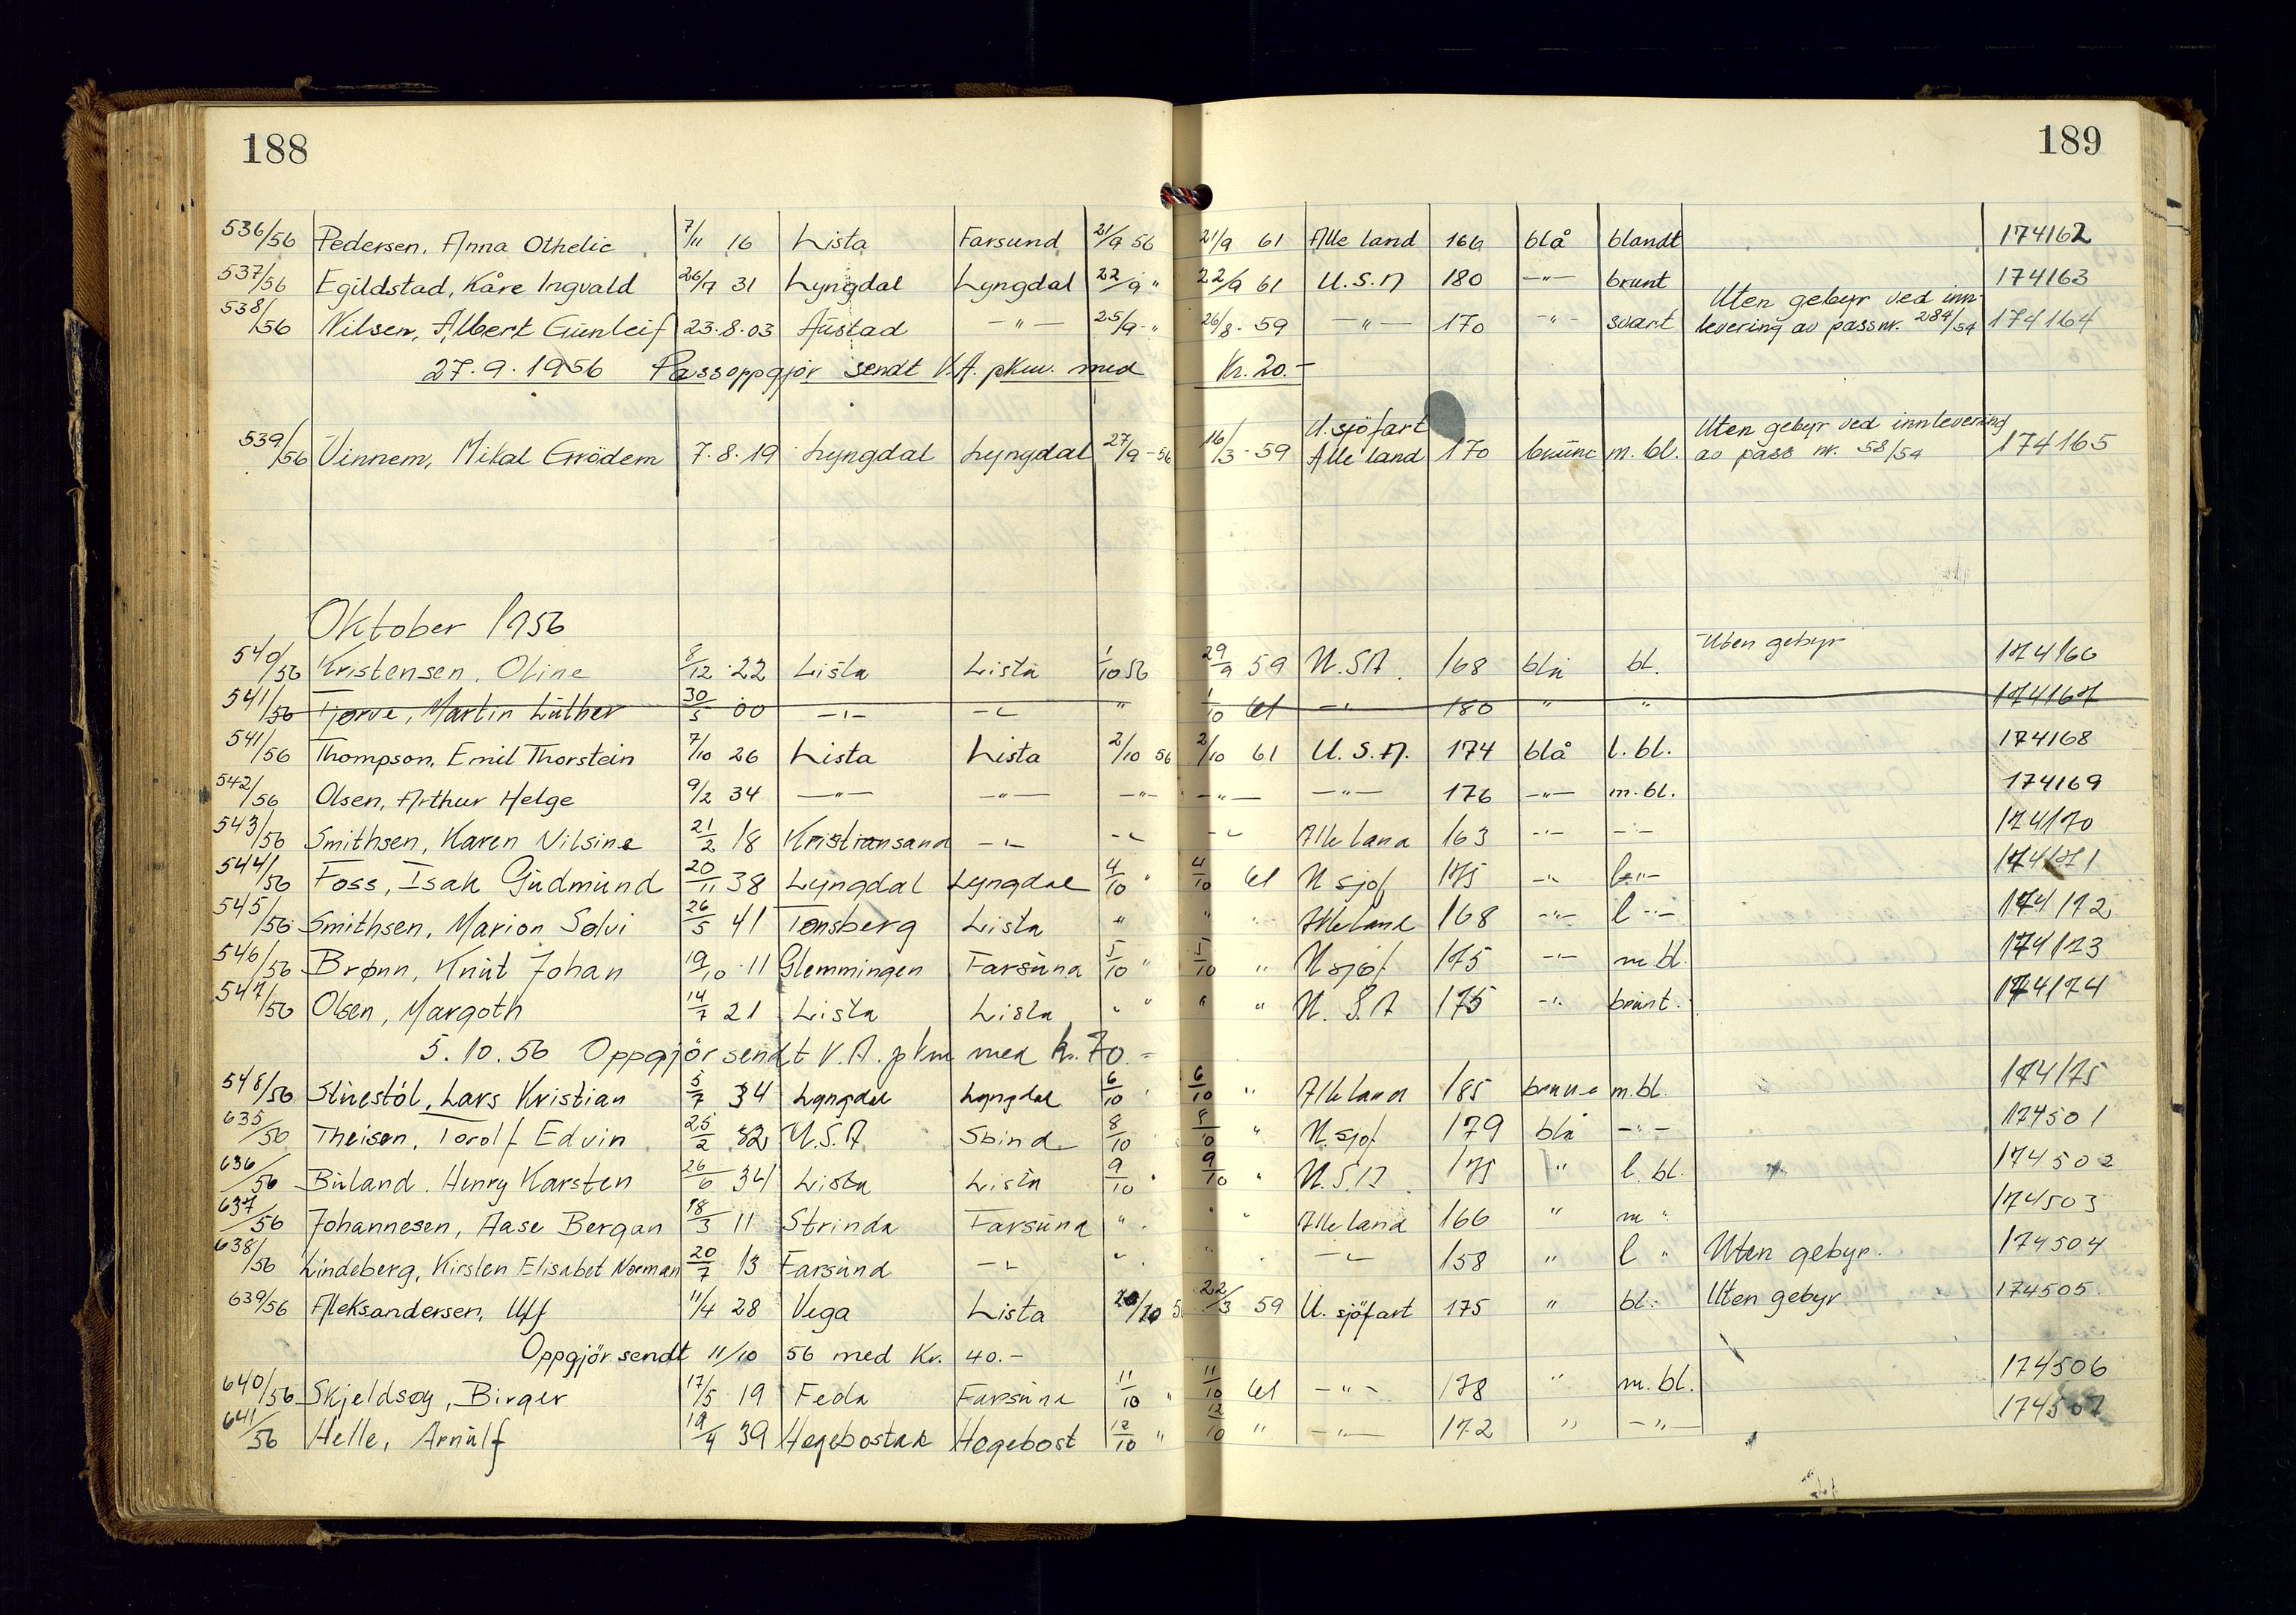 188
189
536/56 Pedersen, Anna Othelie 7/11 16 Lista Farsund 21/9 56 21/9 61 Alle land 166 blå blandt 174162
537/56 Egildstad, Kåre Ingvald 26/7 31 Lyngdal Lyngdal 22/9 " 22/9 61 U.S.A 180 -"- brunt 174163
538/56 Nilsen, Albert Gunleif 23.8.03 Austad -"- 25/9 - " 26/8 - 59 -"- 170 -"- svart Uten gebyr ved inn-
levering av passnr. 284/54 174164
27.9.1956 Passoppgjör sendt V.A. pkm. med Kr. 20.-
539/56 Vinnem, Mikal Grödem 7.8.19 Lyngdal Lyngdal 27/9 - 56 16/3 - 59 U. sjöfart
Alle land 170 brune m. bl. Uten gebyr ved innlevering
av pass nr. 58/54 174165
Oktober 1956
540/56 Kristensen, Oline 8/12 22 Lista Lista 1/10 56 29/9 59 U.S.A. 168 blå bl. Uten gebyr 174166
541/56 Tjørve, Martin Luther 30/5 00 -"- -"- " 1/10 61 -"- 180 " " 174167
541/56 Thompson, Emil Thorstein 7/10 26 Lista Lista 2/10 56 2/10 61 U.S.A. 174 blå l. bl. 174168
542/56 Olsen, Arthur Helge 9/2 34 -"- -"- -"- -"- -"- 176 -"- m. bl. 174169
543/56 Smithsen, Karen Nilsine 21/2 18 Kristiansand -"- -"- -"- Alle land 163 -"- -"- 174170
544/56 Foss, Isak Gudmund 20/11 38 Lyngdal Lyngdal 4/10 " 4/10 61 U sjøf 175 -"- l -"- 174171
545/56 Smithsen, Marion Sølvi 26/5 41 Tønsberg Lista " " " Alle land 168 -"- l -"- 174172
546/56 Brønn, Knut Johan 19/10 11 Glemmingen Farsund 5/10 " 5/10 " U sjøf 175 -"- m bl. 174173
547/56 Olsen, Margoth 14/7 21 Lista Lista " " " " U.S.A 175 -"- brunt. 174174
5.10.56 Oppgjör sendt V.A. pkm med kr. 70.-
548/56 Stuestöl, Lars Kristian 5/7 34 Lyngdal Lyngdal 6/10 " 6/10 " Alle land 185 brune m.bl. 174175
635/56 Theisen, Torolf Edvin 25/2 32 U.S.A Sbind 8/10 8/10 " U. sjøf 179 blå -"- 174501
636/56 Buland, Henry Karsten 26/6 34 Lista Lista 9/10 " 9/10 " U.S.A 175 " l. bl. 174502
637/56 Johannesen, Aase Bergan 18/3 11 Strinda Farsund " " " Alle land 166 " m " 174503
638/56 Lindeberg, Kirsten Elisabet Norman 20/7 13 Farsund -"- " " " -"- 158 " l " Uten gebyr. 174504
639/56 Aleksandersen, Ulf 11/4 28 Vega Lista 10 5 22/3 59 U. sjöfart 175 " bl. Uten gebyr 174505
Oppgjör sendt 11/10 56 med Kr. 40.-
640/56 Skjeldsøy, Birger 17/5 19 Feda Farsund 11/10 " 11/10 61 -"- 178 " m. bl. 174506
641/56 Helle, Arnulf 19/4 39 Hegebostad Hegebost 12/10 " 12/10 " -"- 172 " -"- 174507